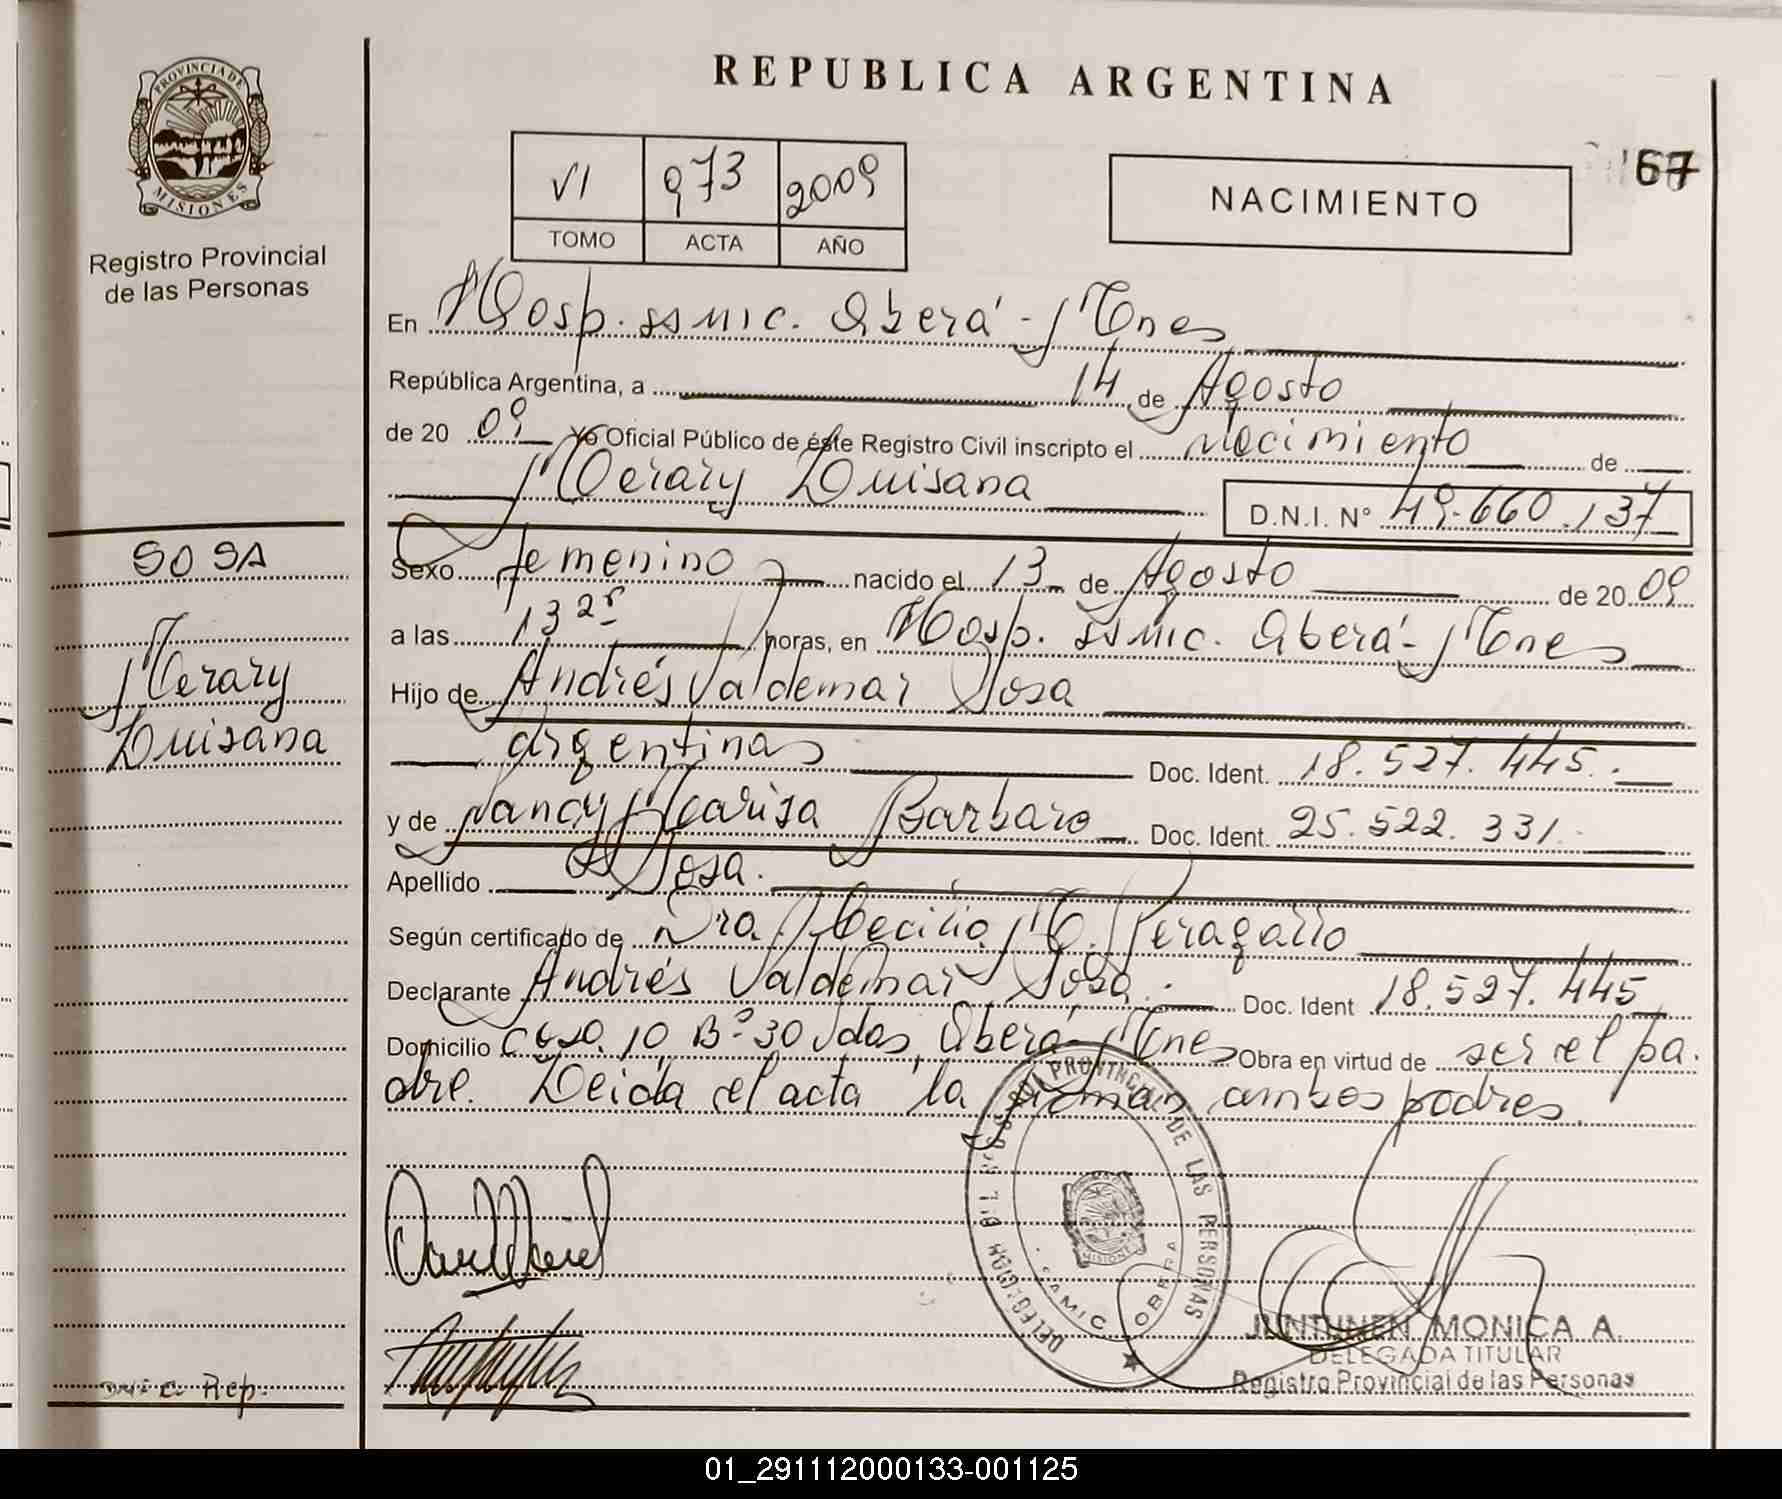 REPUBLICA ARGENTINA
PROVINCIA DE
MISIONES
Registro Provincial
de las Personas
VI 973 2009
TOMO ACTA AÑO
NACIMIENTO
67
En Hosp. SSMIC. Oberá - Mnes
República Argentina, a 14 de Agosto
de 20 09 Yo Oficial Público de éste Registro Civil inscripto el Nacimiento de
Merary Luisana
D.N.I. N° 49.660.137
SOSA
Merary
Luisana
Sexo femenino nacido el 13 de Agosto de 20 09
a las 13 25 horas, en Hosp. SSMIC. Oberá - Mnes
Hijo de Andrés Valdemar Sosa
argentinas Doc. Ident. 18.527.445.
y de Nancy Marisa Barbaro Doc. Ident. 25.522.331.
Apellido Sosa.
Según certificado de Dra. Cecilia M. Peragallo
Declarante Andrés Valdemar Sosa. Doc. Ident 18.527.445
Domicilio 10 B° 30 Vdas, Oberá - Mnes Obra en virtud de ser el pa.
dre. Leida el acta la firman ambos padres.
PROVINCIAL DE LAS PERSONAS
MISIONES
SAMIC OBERA
JUNTUNEN MONICA A.
DELEGADA TITULAR
Registro Provincial de las Personas
Rep.
01_291112000133-001125